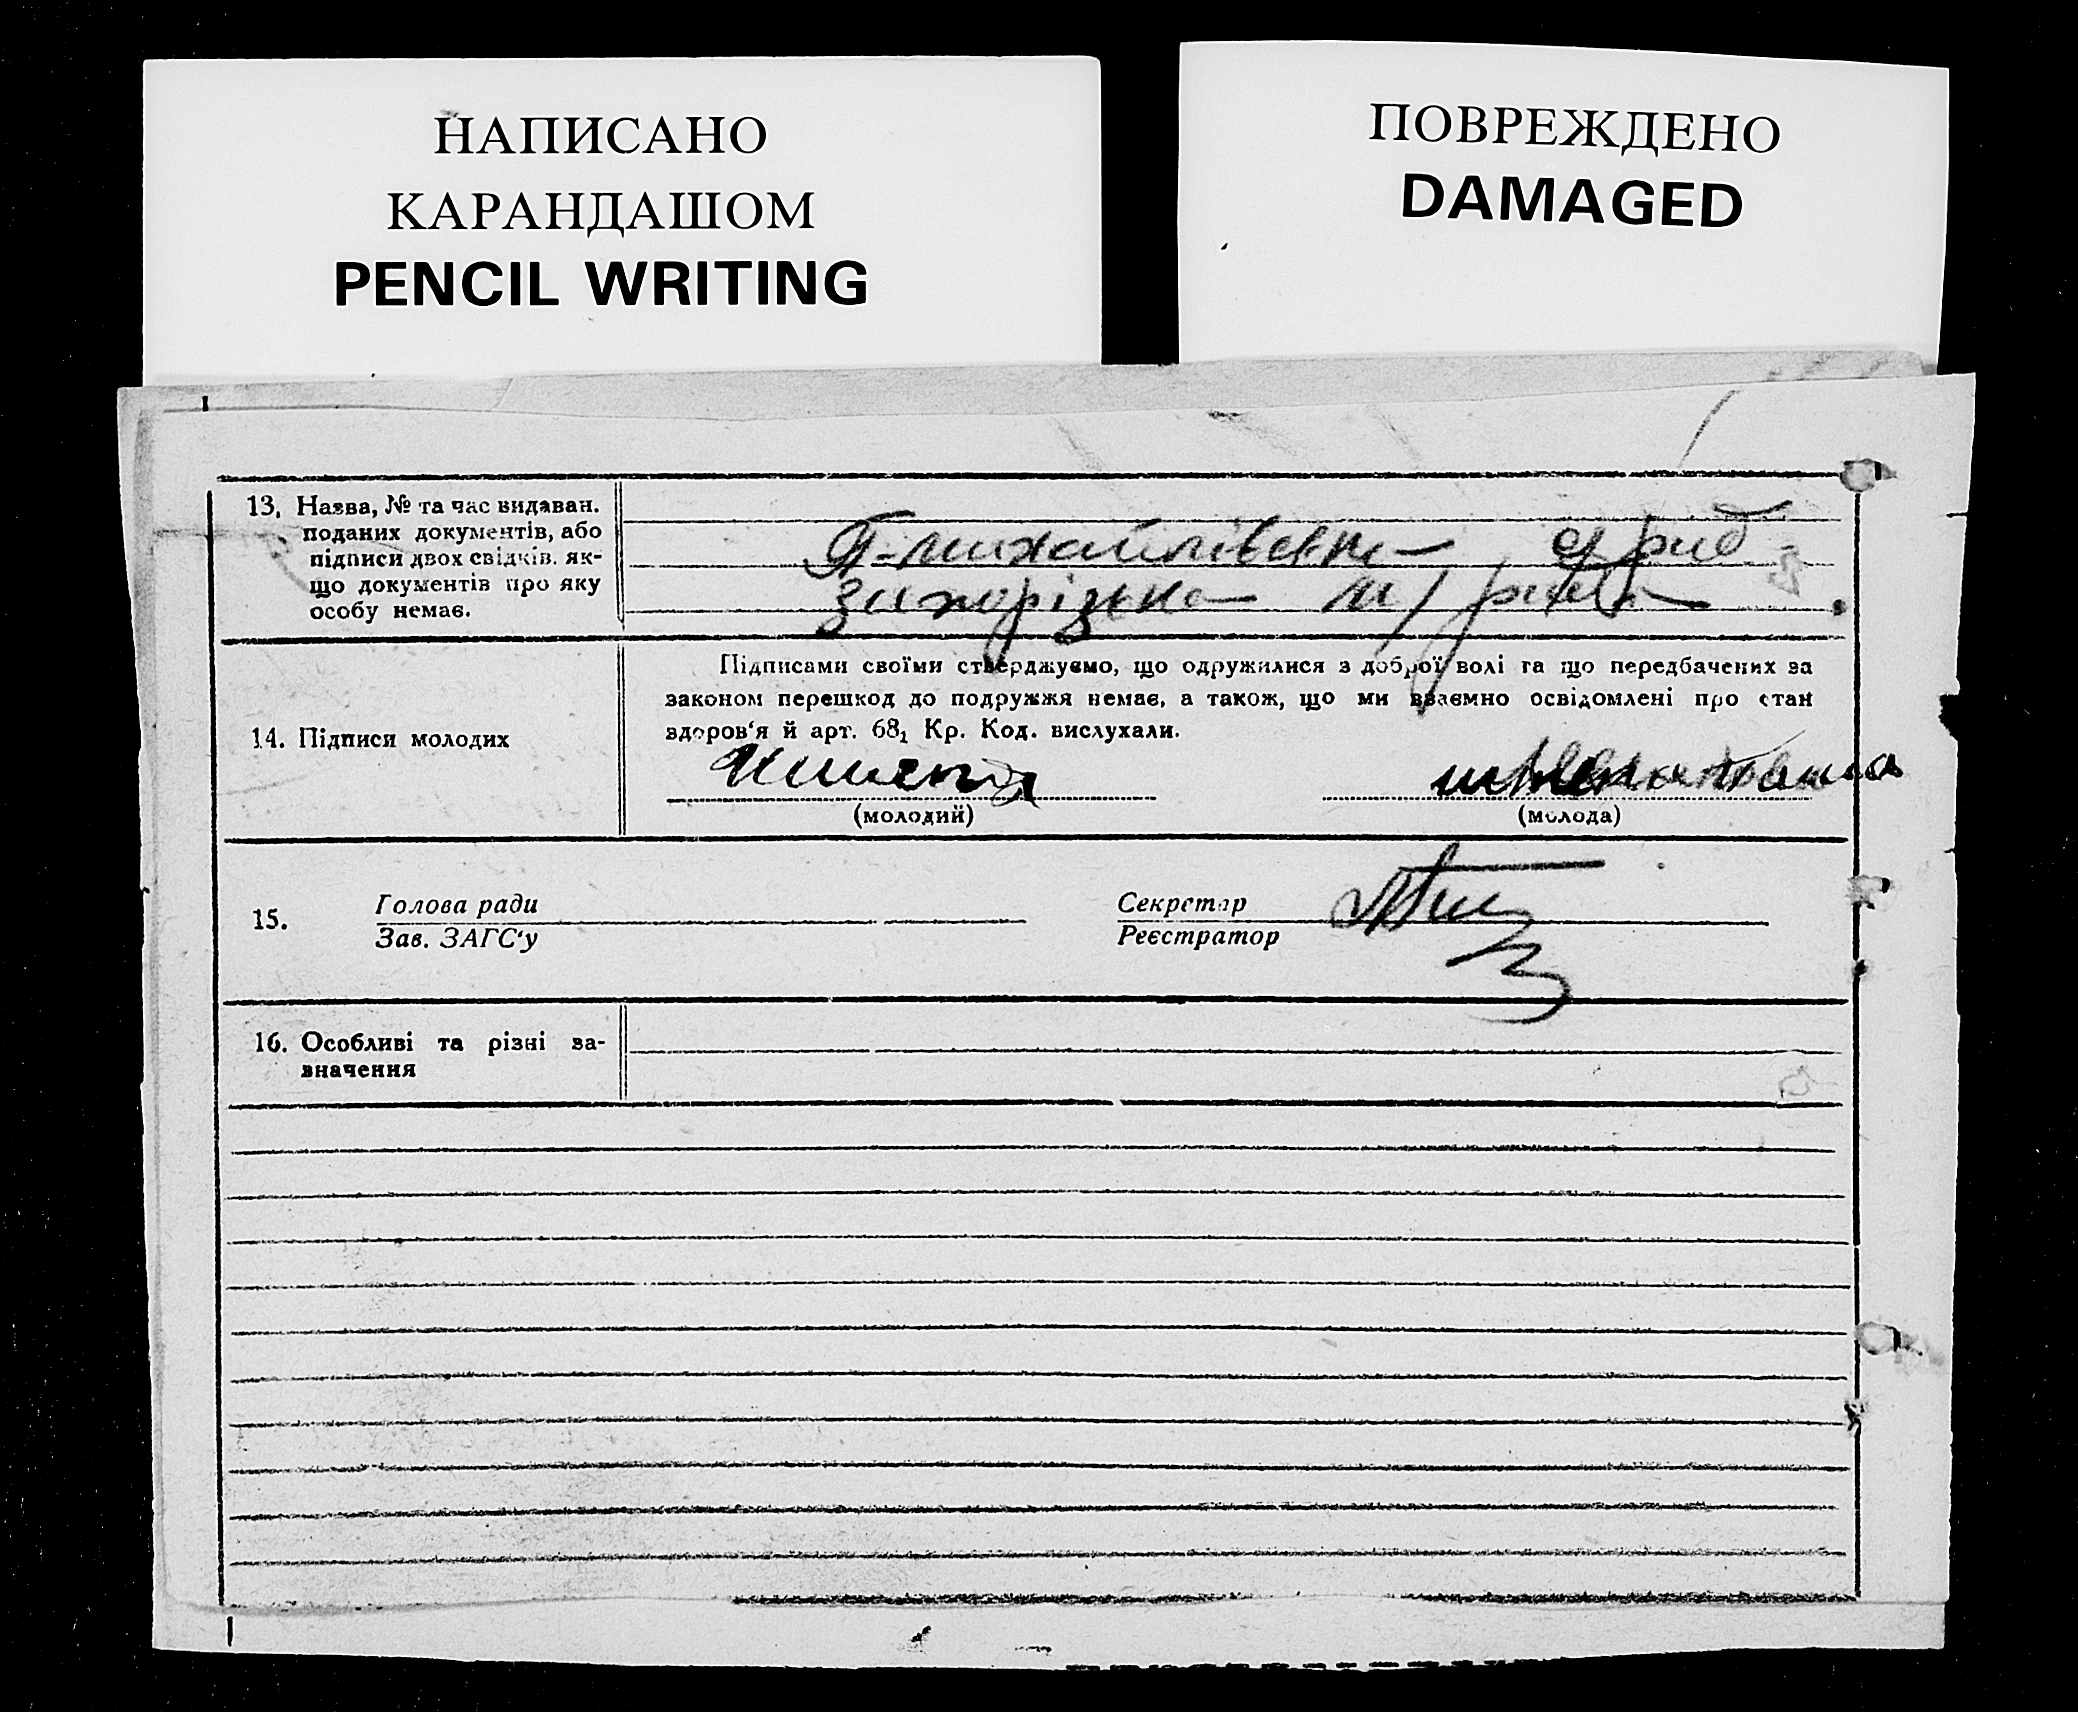 НАПИСАНО
КАРАНДАШОМ
PENCIL WRITING
ПОВРЕЖДЕНО
DAMAGED
13. Назва, № та час видаван.
поданих документів, або
підписи двох свідків, як-
що документів про яку
особу немає.
Михайлівська
запорізька м/рада
14. Підписи молодих
Підписами своїми стверджуємо, що одружилися з доброї волі та що передбачених за
законом перешкод до подружжя немає, а також, що ми взаємно освідомлені про стан
здоров'я й арт. 68₁ Кр. Код. вислухали.
(молодий)
(молода)
15.
Голова ради
Зав. ЗАГС'у
Секретар
Реєстратор
16. Особливі та різні за-
значення